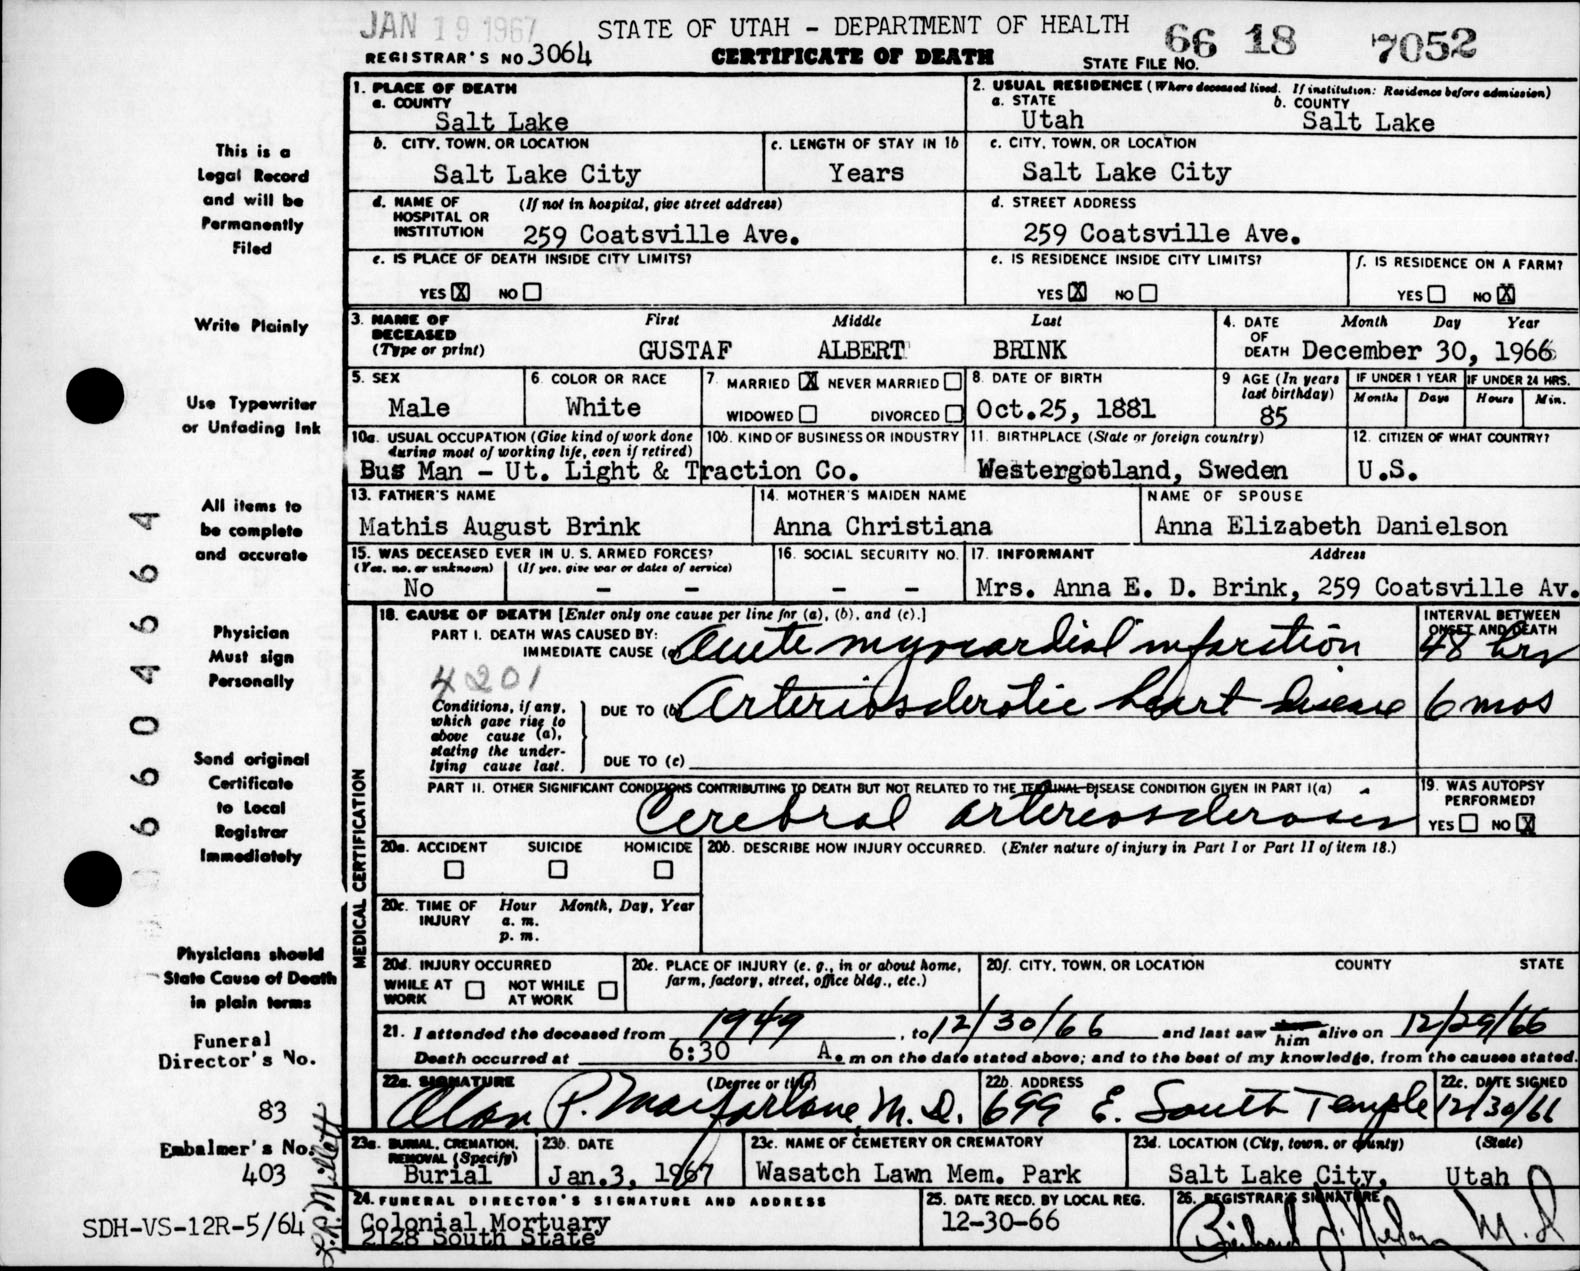 JAN 19 1967
STATE OF UTAH - DEPARTMENT OF HEALTH
66 18 7052
REGISTRAR'S NO 3064
CERTIFICATE OF DEATH
STATE FILE NO.
1. PLACE OF DEATH
a. COUNTY
Salt Lake
2. USUAL RESIDENCE (Where deceased lived. If institution: Residence before admission)
a. STATE
Utah
b. COUNTY
Salt Lake
b. CITY, TOWN, OR LOCATION
Salt Lake City
c. LENGTH OF STAY IN 1b
Years
c. CITY, TOWN, OR LOCATION
Salt Lake City
d. NAME OF HOSPITAL OR INSTITUTION
(If not in hospital, give street address)
259 Coatsville Ave.
d. STREET ADDRESS
259 Coatsville Ave.
e. IS PLACE OF DEATH INSIDE CITY LIMITS?
YES X NO
e. IS RESIDENCE INSIDE CITY LIMITS?
YES X NO
f. IS RESIDENCE ON A FARM?
YES NO X
3. NAME OF DECEASED
(Type or print)
First Middle Last
GUSTAF ALBERT BRINK
4. DATE OF DEATH
Month Day Year
December 30, 1966
5. SEX
Male
6. COLOR OR RACE
White
7. MARRIED X NEVER MARRIED
WIDOWED DIVORCED
8. DATE OF BIRTH
Oct.25, 1881
9 AGE (In years last birthday)
85
IF UNDER 1 YEAR
Months Days
IF UNDER 24 HRS.
Hours Min.
10a. USUAL OCCUPATION (Give kind of work done during most of working life, even if retired)
10b. KIND OF BUSINESS OR INDUSTRY
Bus Man - Ut. Light & Traction Co.
11. BIRTHPLACE (State or foreign country)
Westergotland, Sweden
12. CITIZEN OF WHAT COUNTRY?
U.S.
13. FATHER'S NAME
Mathis August Brink
14. MOTHER'S MAIDEN NAME
Anna Christiana
NAME OF SPOUSE
Anna Elizabeth Danielson
15. WAS DECEASED EVER IN U. S. ARMED FORCES?
(Yes, no, or unknown) (If yes, give war or dates of service)
No - -
16. SOCIAL SECURITY NO.
- -
17. INFORMANT Address
Mrs. Anna E. D. Brink, 259 Coatsville Av.
MEDICAL CERTIFICATION
18. CAUSE OF DEATH [Enter only one cause per line for (a), (b), and (c).]
PART I. DEATH WAS CAUSED BY:
IMMEDIATE CAUSE (a) Acute myocardial infarction
INTERVAL BETWEEN ONSET AND DEATH
48 hrs
4201
Conditions, if any, which gave rise to above cause (a), stating the underlying cause last.
DUE TO (b) Arteriosclerotic heart disease
6 mos
DUE TO (c)
PART II. OTHER SIGNIFICANT CONDITIONS CONTRIBUTING TO DEATH BUT NOT RELATED TO THE TERMINAL DISEASE CONDITION GIVEN IN PART I(a)
Cerebral arteriosclerosis
19. WAS AUTOPSY PERFORMED?
YES NO X
20a. ACCIDENT SUICIDE HOMICIDE
20b. DESCRIBE HOW INJURY OCCURRED. (Enter nature of injury in Part I or Part II of item 18.)
20c. TIME OF INJURY
Hour Month, Day, Year
a. m.
p. m.
20d. INJURY OCCURRED
WHILE AT WORK
NOT WHILE AT WORK
20e. PLACE OF INJURY (e. g., in or about home, farm, factory, street, office bldg., etc.)
20f. CITY, TOWN, OR LOCATION COUNTY STATE
21. I attended the deceased from 1949, to 12/30/66 and last saw him alive on 12/29/66
Death occurred at 6:30 A. m on the date stated above; and to the best of my knowledge, from the causes stated.
22a. SIGNATURE (Degree or title)
Alan P. Macfarlane, M.D.
22b. ADDRESS
699 E. South Temple
22c. DATE SIGNED
12/30/66
23a. BURIAL, CREMATION, REMOVAL (Specify)
Burial
23b. DATE
Jan.3, 1967
23c. NAME OF CEMETERY OR CREMATORY
Wasatch Lawn Mem. Park
23d. LOCATION (City, town, or county) (State)
Salt Lake City, Utah
24. FUNERAL DIRECTOR'S SIGNATURE AND ADDRESS
Colonial Mortuary
2128 South State
25. DATE RECD. BY LOCAL REG.
12-30-66
26. REGISTRAR'S SIGNATURE
M.D
This is a
Legal Record
and will be
Permanently
Filed
Write Plainly
Use Typewriter
or Unfading Ink
All items to
be complete
and accurate
Physician
Must sign
Personally
Send original
Certificate
to Local
Registrar
Immediately
Physicians should
State Cause of Death
in plain terms
Funeral
Director's No.
83
Embalmer's No.
403
SDH-VS-12R-5/64